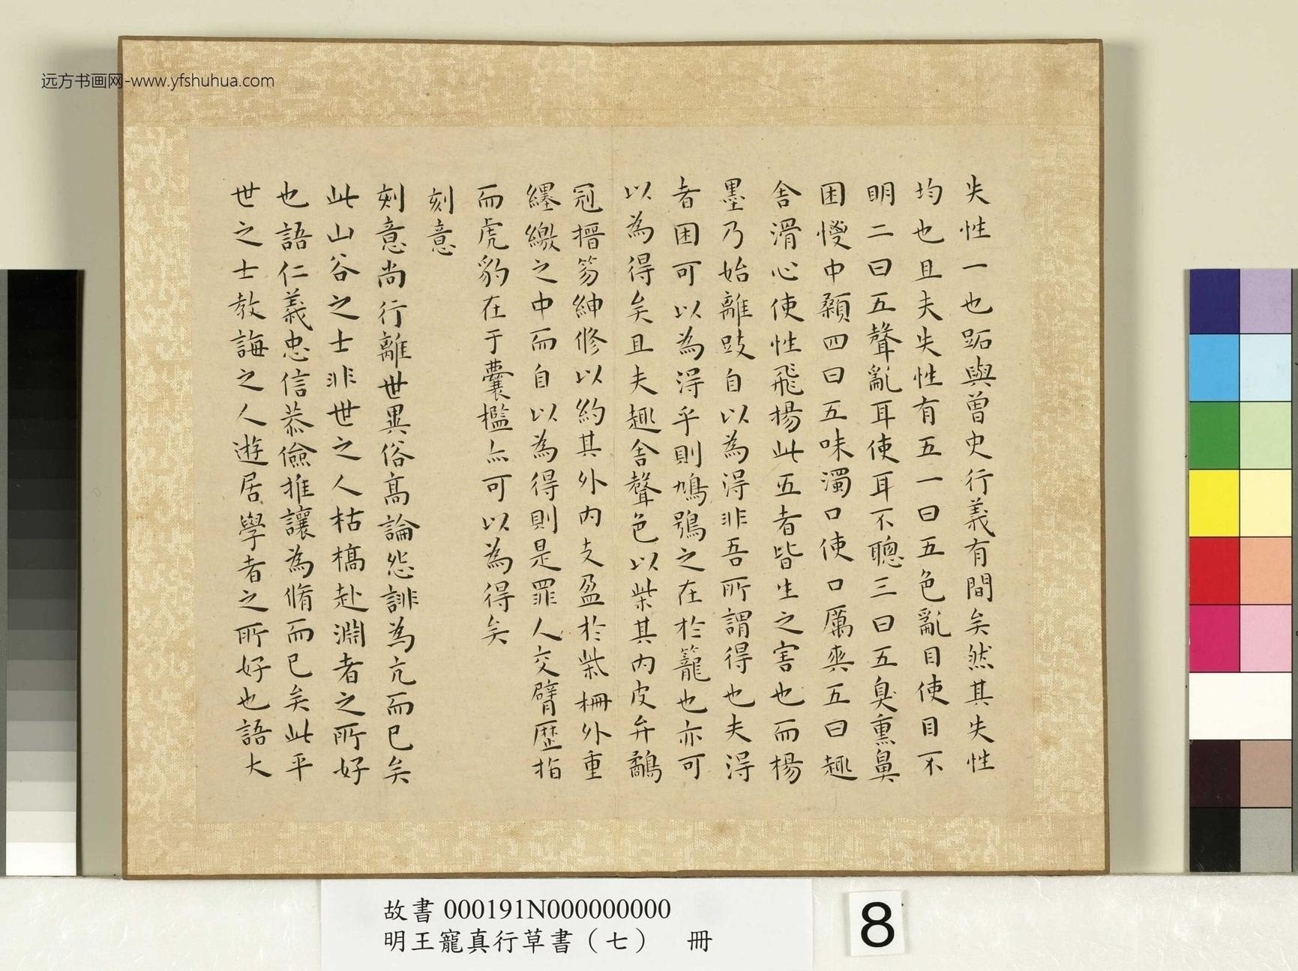 远方书画网-www.yfshuhua.com
失性一也跖與曾史行義有間矣然其失性
均也且夫失性有五一曰五色亂目使目不
明二曰五聲亂耳使耳不聰三曰五臭熏鼻
困惾中顙四曰五味濁口使口厲爽五曰趣
舍滑心使性飛揚此五者皆生之害也而楊
墨乃始離跂自以為淂非吾所謂得也夫淂
者困可以為淂乎則鳩鴞之在於籠也亦可
以為得矣且夫趣舍聲色以柴其內皮弁鷸
冠搢笏紳修以約其外內支盈於柴柵外重
纆繳之中而自以為得則是罪人交臂歷指
而虎豹在于囊檻亦可以為得矣
刻意
刻意尚行離世異俗高論怨誹為亢而已矣
此山谷之士非世之人枯槁赴淵者之所好
也語仁義忠信恭儉推讓為脩而已矣此平
世之士教誨之人遊居學者之所好也語大
故書 000191N000000000
明王寵真行草書（七） 冊
8